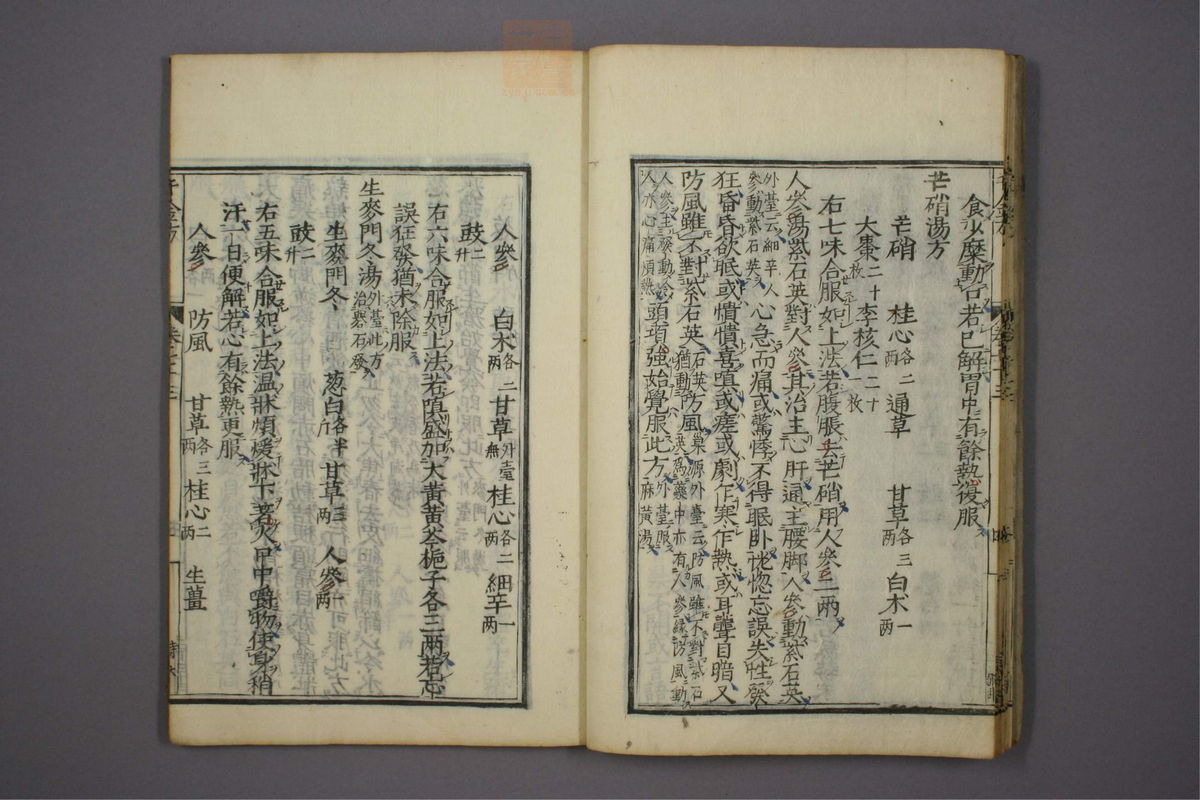 食少糜動若已解胃中有餘熱復服
芒硝湯方
芒硝 桂心各二兩 通草 甘草各三兩 白朮一兩
大棗二十枚 李核仁二十一枚
右七味合服如上法若腹脹去芒硝用人參二兩
人參湯紫石英對人參其治主心肝通主腰脚人參動紫石英
外臺云細辛人參動紫石英 心急而痛或驚悸不得眠卧恍惚忘誤失性發
狂昏昏欲眠或憒憒喜嗔或瘥或劇乍寒乍熱或耳聾目暗又
防風雖不對紫石英 猶動防風 石英防風巢源外臺云防風雖不對紫石英為藥中亦有人參緣防風動
人參主發動令人亦心痛煩熱 頭項強始覺服此方 外臺服麻黃湯
人參 白朮各二兩 甘草外臺無 桂心各二兩 細辛一兩
豉二升
右六味合服如上法若嗔盛加大黃黃芩梔子各三兩若忘
誤狂發猶未除服
生麥門冬湯外臺此方治礜石發
生麥門冬 葱白各半斤 甘草三兩 人參一兩
豉二升
右五味合服如上法溫牀煩煖牀下著火口中嚼物使身稍
汗一日便解若心有餘熱更服
人參一兩 防風 甘草各三兩 桂心二兩 生薑